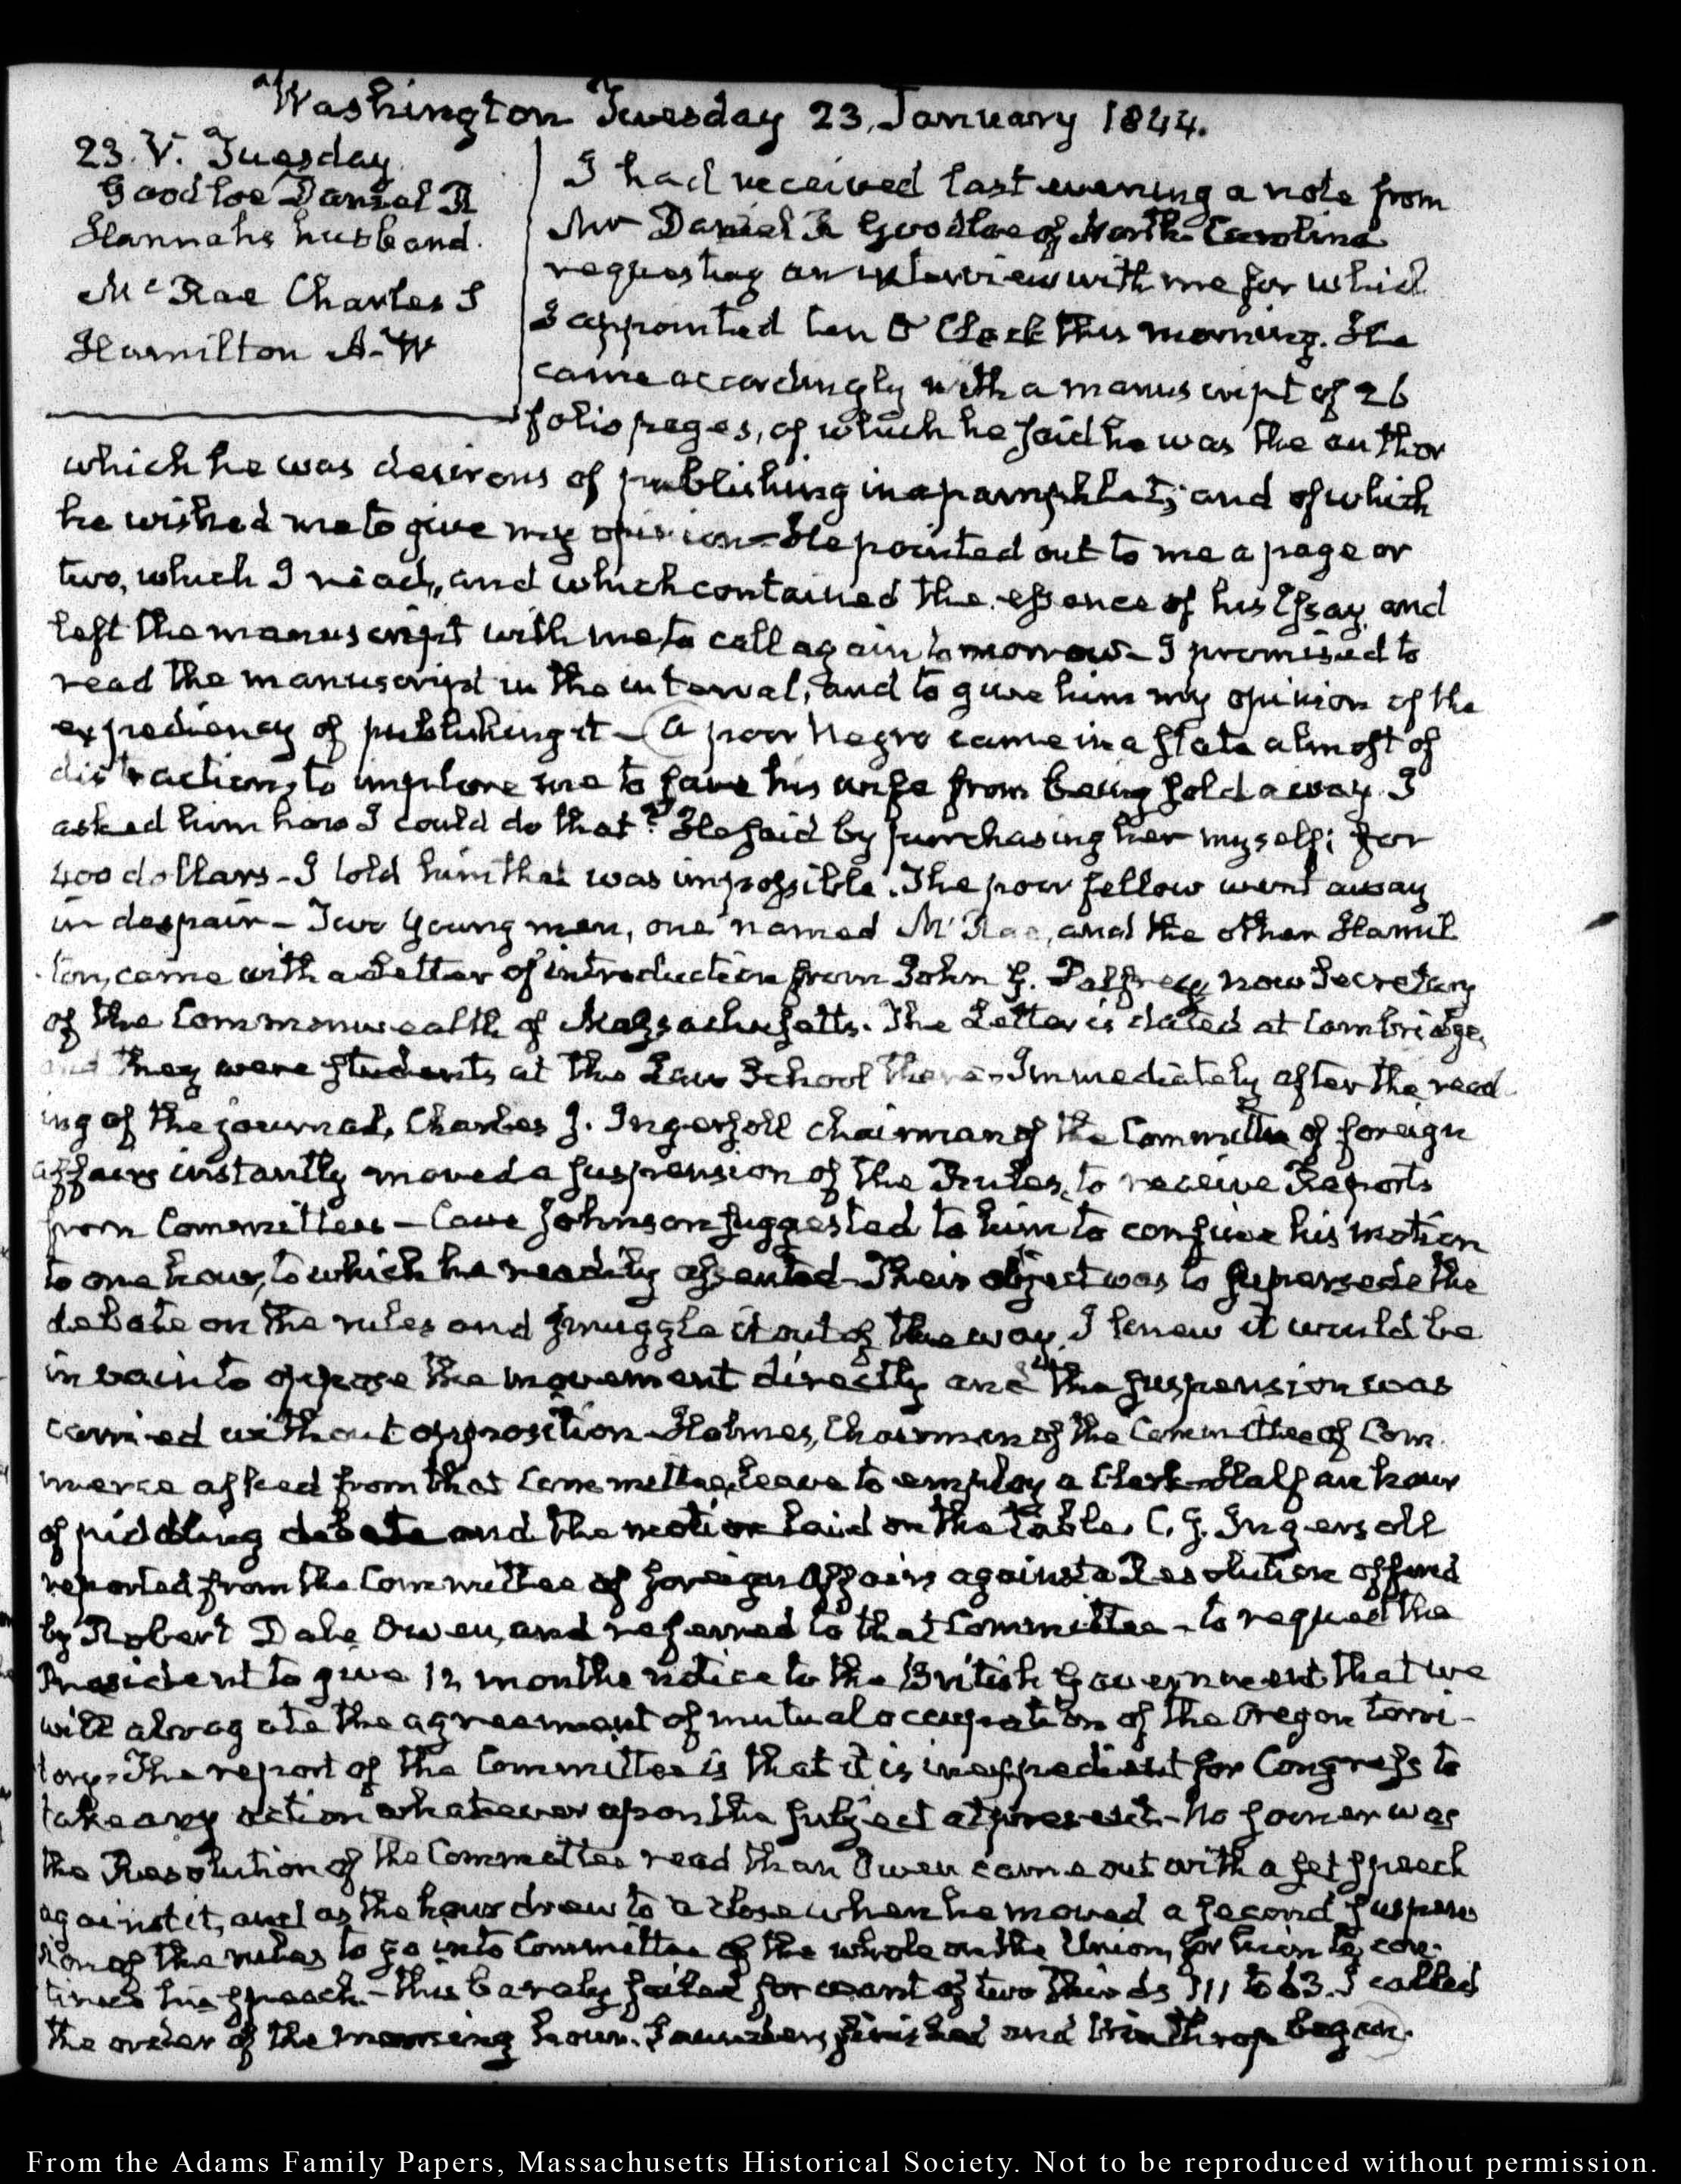 Washington Tuesday 23. January 1844.
23. V. Tuesday
Goodloe Daniel R
Hannahs husband.
McRae Charles S
Hamilton A. W
I had received last evening a note from
Mr Daniel R Goodloe of North Carolina
requesting an interview with me for which
I appointed ten O'Clock this morning. He
came accordingly with a manuscript of 26
folio pages, of which he said he was the author
which he was desirous of publishing in a pamphlet; and of which
he wished me to give my opinion - He pointed out to me a page or
two, which I read, and which contained the essence of his Essay, and
left the manuscript with me, to call again tomorrow - I promised to
read the manuscript in the interval, and to give him my opinion of the
expediency of publishing it - A poor Negro came in a state almost of
distraction, to implore me to save his wife from being sold away. I
asked him how I could do that? He said by purchasing her myself; for
400 dollars - I told him that was impossible. The poor fellow went away
in despair - Two young men, one named McRae, and the other Hamil
ton, came with a Letter of introduction from John G. Palfrey now Secretary
of the Commonwealth of Massachusetts. The Letter is dated at Cambridge,
and they were students at the Law School there - Immediately after the read
ing of the journal, Charles J. Ingersoll chairman of the Committee of foreign
affairs instantly moved a suspension of the Rules, to receive Reports
from Committees - Cave Johnson suggested to him to confine his motion
to one hour, to which he readily assented - Their object was to supersede the
debate on the rules and smuggle it out of the way. I knew it would be
in vain to oppose the movement directly and the suspension was
carried without opposition - Holmes, Chairman of the Committee of Com
merce asked from that Committee, leave to employ a Clerk - Half an hour
of piddling debate and the motion laid on the table. C. J. Ingersoll
reported from the Committee of foreign Affairs against a Resolution offered
by Robert Dale Owen, and referred to that Committee - to request the
President to give 12 months notice to the British Government that we
will abrogate the agreement of mutual occupation of the Oregon terri-
tory - The report of the Committee is that it is inexpedient for Congress to
take any action whatever upon the subject at present - No sooner was
the Resolution of the Committee read than Owen came out with a set speech
against it, and as the hour drew to a close when he moved a second suspen
sion of the rules to go into Committee of the whole on the Union, for him to con-
tinue his speech - this barely failed for want of two thirds 111 to 63. I called
the order of the morning hour. Saunders finished and Winthrop began.
From the Adams Family Papers, Massachusetts Historical Society. Not to be reproduced without permission.